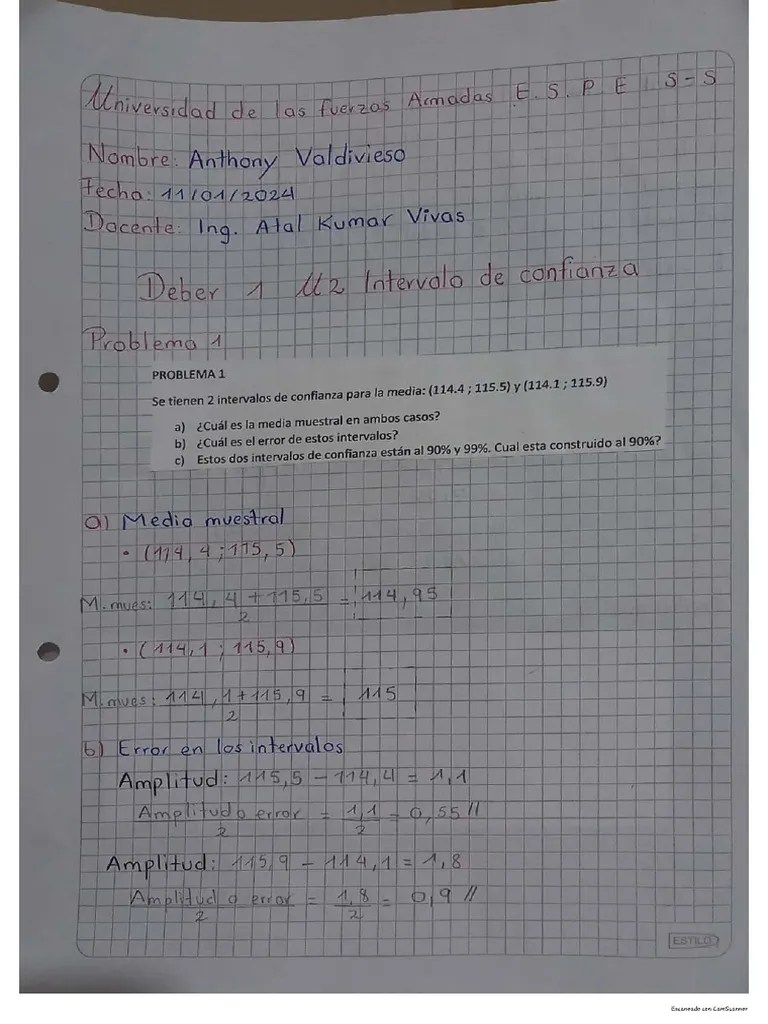 Universidad de las fuerzas Armadas E.S.P.E S-S
Nombre: Anthony Valdivieso
Fecha: 11/01/2024
Docente: Ing. Atal Kumar Vivas
Deber 1 U2 Intervalo de confianza
Problema 1
PROBLEMA 1
Se tienen 2 intervalos de confianza para la media: (114.4 ; 115.5) y (114.1 ; 115.9)
a) ¿Cuál es la media muestral en ambos casos?
b) ¿Cuál es el error de estos intervalos?
c) Estos dos intervalos de confianza están al 90% y 99%. Cual esta construido al 90%?
a) Media muestral
• (114,4 ; 115,5)
M.mues: 114,4 + 115,5 = 114,95
2
• (114,1 ; 115,9)
M.mues: 114,1 + 115,9 = 115
2
b) Error en los intervalos
Amplitud: 115,5 - 114,4 = 1,1
Amplitud o error = 1,1 = 0,55 //
2 2
Amplitud: 115,9 - 114,1 = 1,8
Amplitud o error = 1,8 = 0,9 //
2 2
ESTILO
Escaneado con CamScanner